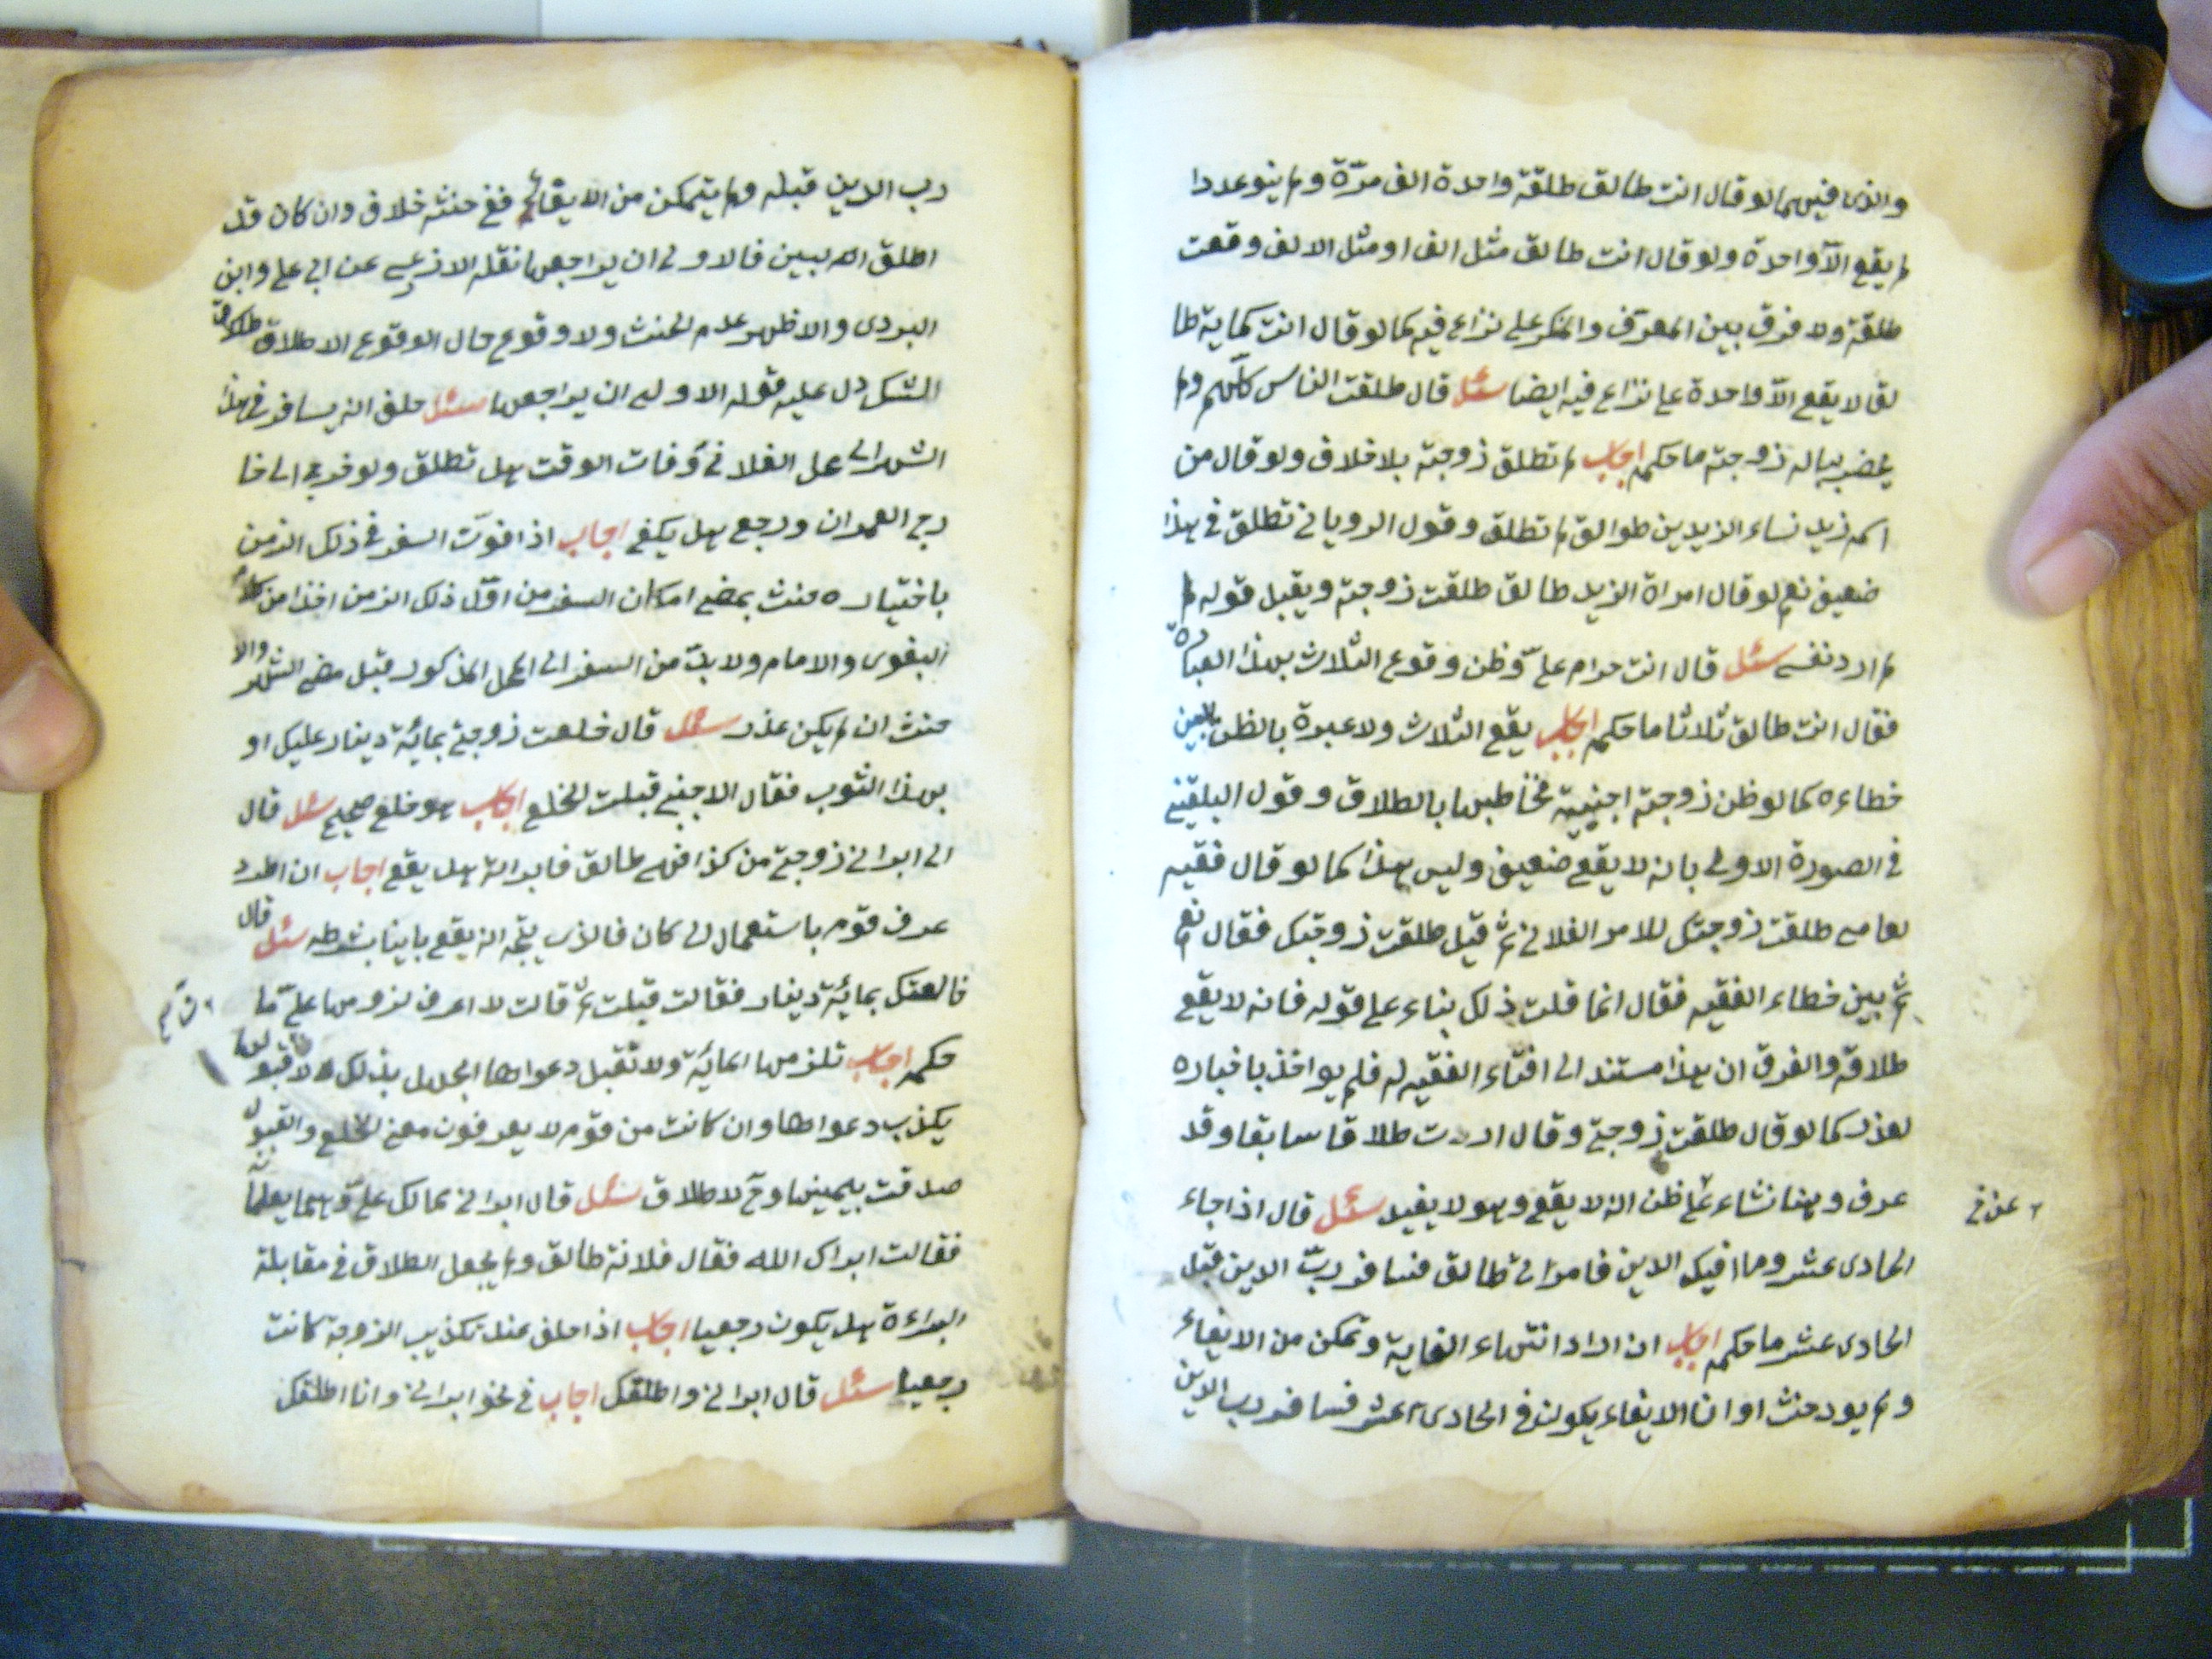 والذى فيهما لو قال انت طالق طلقة واحدة الف مرّة ولم ينو عددا
لم يقع الاّ واحدة ولو قال انت طالق مثل الف او مثل الالف وقعت
طلقة ولا فرق بين المعرّف والمنكر على نزاع فيه كما لو قال انت كماية طا
لق لا يقع الاّ واحدة على نزاع فيه ايضا سئل قال طلقت الناس كلّهم ولم
يخضر بباله زوجته ما حكمه اجاب لم تطلق زوجته بلا خلاف ولو قال من
اسمه زيد نساء الزيدين طوالق لم تطلق وقول الرويانى تطلق فى هذا
ضعيف نعم لو قال امراة الزيد طالق طلقت زوجته ويقبل قوله لم
لم ارد نفسى سئل قال انت حرام علىّ وظن وقوع الثلاث بهذا العبارة
فقال انت طالق ثلاثا ما حكمه اجاب يقع الثلاث ولا عبرة بالظن البين
خطاءه كما لو ظن زوجته اجنبية فخاطبها بالطلاق وقول البلقينى
فى الصورة الاولى بانه لا يقع ضعيف وليس هذا كما لو قال فقيه
لعامى طلقت زوجتك للامر الفلانى ثم قيل طلقت زوجتك فقال نعم
ثم بين خطاء الفقيه فقال انما قلت ذلك بناء على قوله فانه لا يقع
طلاقه والفرق ان هذا مستند الى افتاء الفقيه له فلم يواخذ باخباره
لعذر كما لو قال طلقت زوجتى وقال اردت طلاقا سابقا وقد
عرف وهنا نشاء على ظن انه لا يقع وهو لا يفيد سئل قال اذا جاء
الحادى عشر وما افيك الدين فامراتى طالق فسافر ربّ الدين قبل
الحادى عشر ما حكمه اجاب ان اراد انتهاء الغاية وتمكن من الايفاء
ولم يود حنث او ان الايفاء يكون فى الحادى عشر فسافر رب الدين
رب الدين قبله ولم يتمكن من الايفاء ففى حنثه خلاف وان كان قد
اطلق اليمين فالاولى ان يراجعها نقله الاذرعى عن ابى على وابن
البزرى والاظهر عدم الحنث ولا وقوع حال الوقوع الاطلاق طلاق
الشك دل عليه قوله الاولى ان يراجعها سئل حلف انه يسافر فى هذا
الشهر الى محل الفلانى وفات الوقت هل تطلق ولو خرج الى خا
رج العمران ورجع هل يكفى اجاب اذا فوّت السفر فى ذلك الزمن
باختياره حنث بمضى امكان السفر من اوّل ذلك الزمن اخذا من كلام
البغوى والامام ولا بدّ من السفر الى المحل المذكور قبل مضى الشهر والا
حنث ان لم يكن عذر سئل قال خلعت زوجتى بمائة دينار عليك او
بهذا الثوب فقال الاجنبى قبلت الخلع اجاب هو خلع صحيح سئل قال
ان ابراتنى زوجتى من كذا فهى طالق فابراته هل يقع اجاب ان اطرد
عرف قوم باستعمال لى كان فالذى يتجه انه يقع باينا بشرطه سئل قال
خالعتك بمائة دينار فقالت قبلت ثم قالت لا اعرف لزومها علىّ ما
حكمه اجاب تلزمها المائة ولا تقبل دعواها الجهل بذلك لان قبولها
يكذب دعواها وان كانت من قوم لا يعرفون معنى الخلع والقبول
صدقت بيمينها وحّ لا طلاق سئل قال ابرانى مما لك علىّ وهما يعلمان
فقالت ابراك الله فقال فلانة طالق ولم يجعل الطلاق فى مقابلة
البراءة هل يكون رجعيا اجاب اذا حلف عند تكذيب الزوجة كانت
رجعيا سئل قال ابرانى واطلقك اجاب فى نحو ابرانى وانا اطلقك